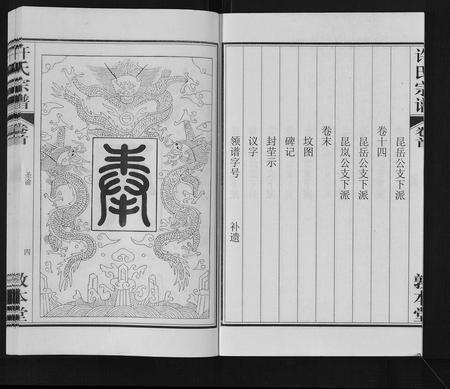 许氏宗谱
卷首
敦本堂
昆岳公支下派
卷十四
昆岳公支下派
昆岚公支下派
卷末
坟图
碑记
封茔示
议字
领谱字号 补遗
奉
许氏宗谱
卷首
圣谕
四
敦本堂